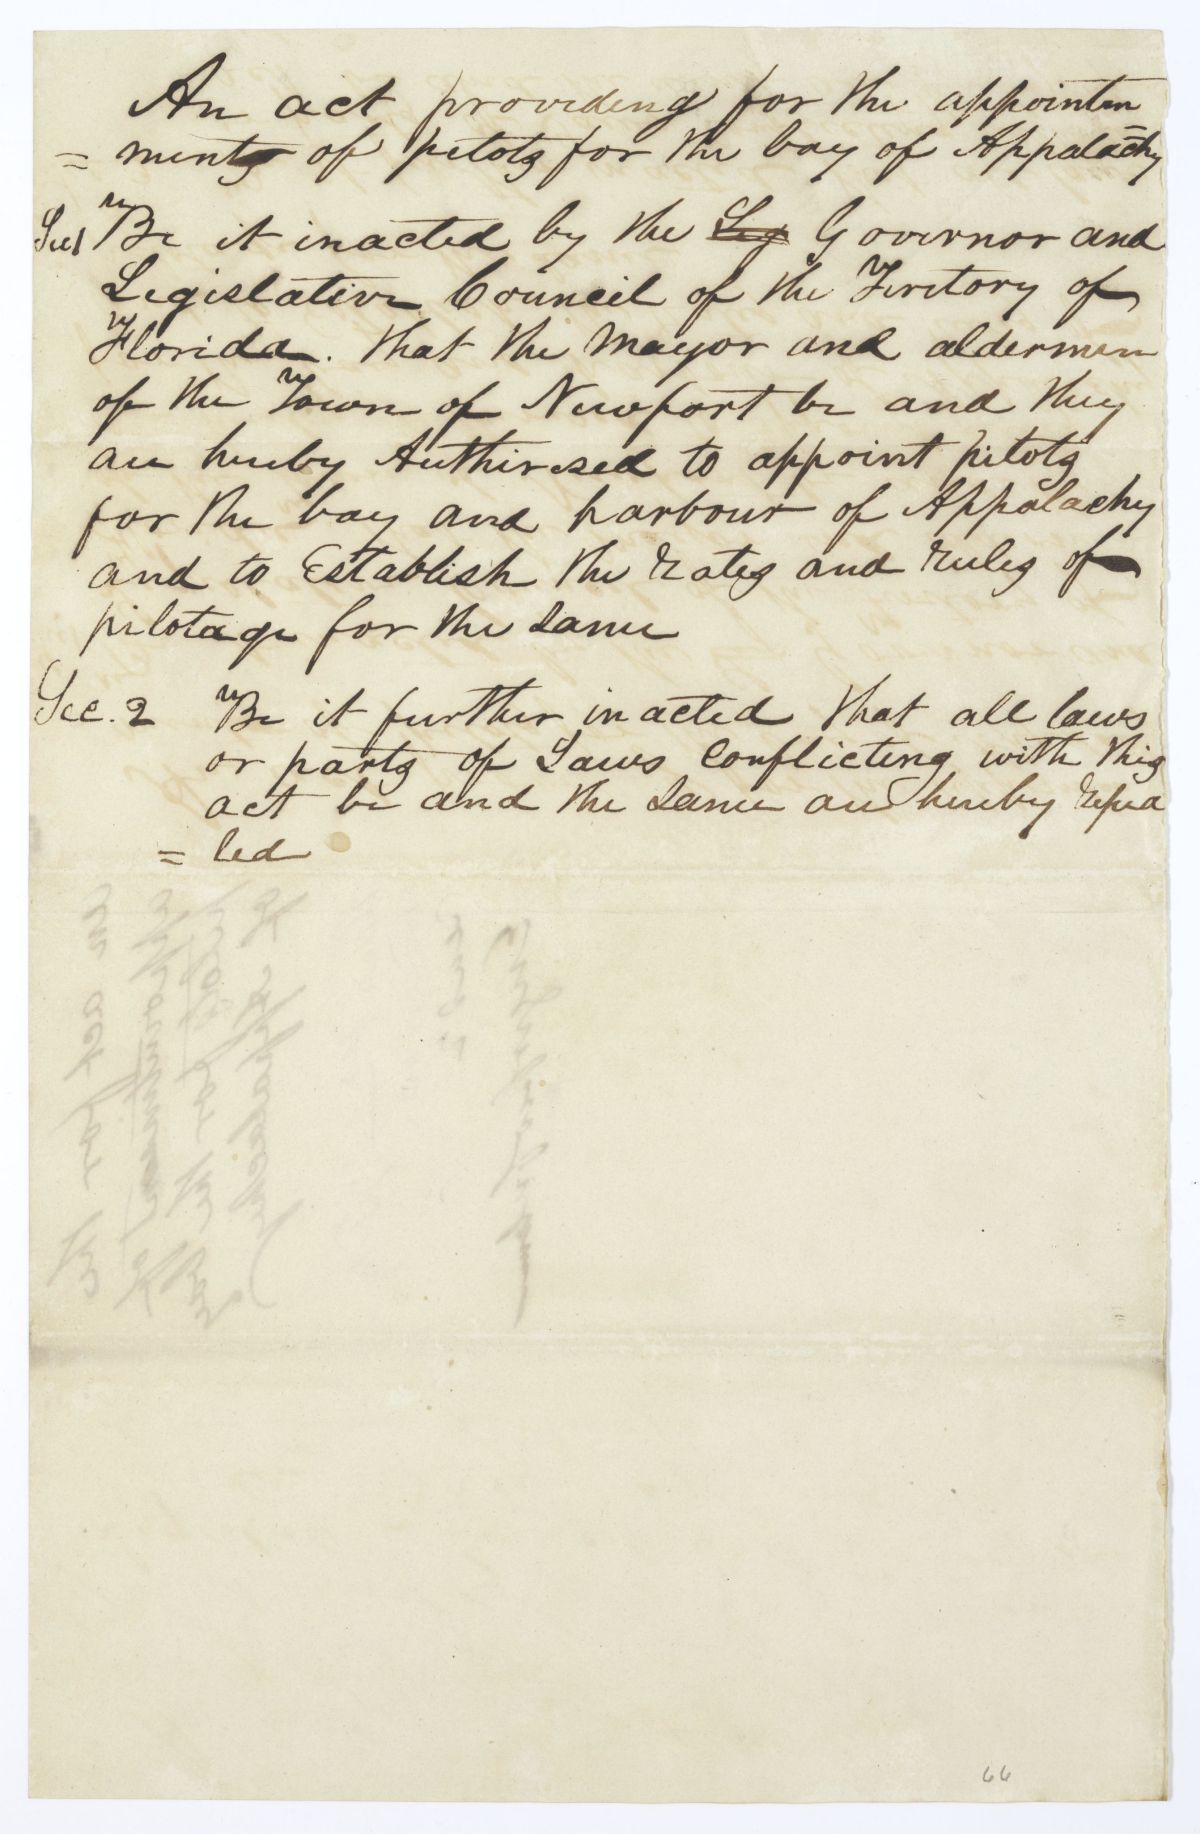 An act providing for the appointm
= ments of pilots for the bay of Appalachy
Sec 1 Be it inacted by the Leg Governor and
Legislative Council of the Teritory of
Florida. that the Mayor and aldermen
of the Town of Newport be and they
are hereby Authirised to appoint pilots
for the bay and harbour of Appalachy
and to Establish the rates and rules of
pilotage for the same
Sec. 2 Be it further inacted that all laws
or parts of Laws Conflicting with this
act be and the same are hereby repea
= led
66